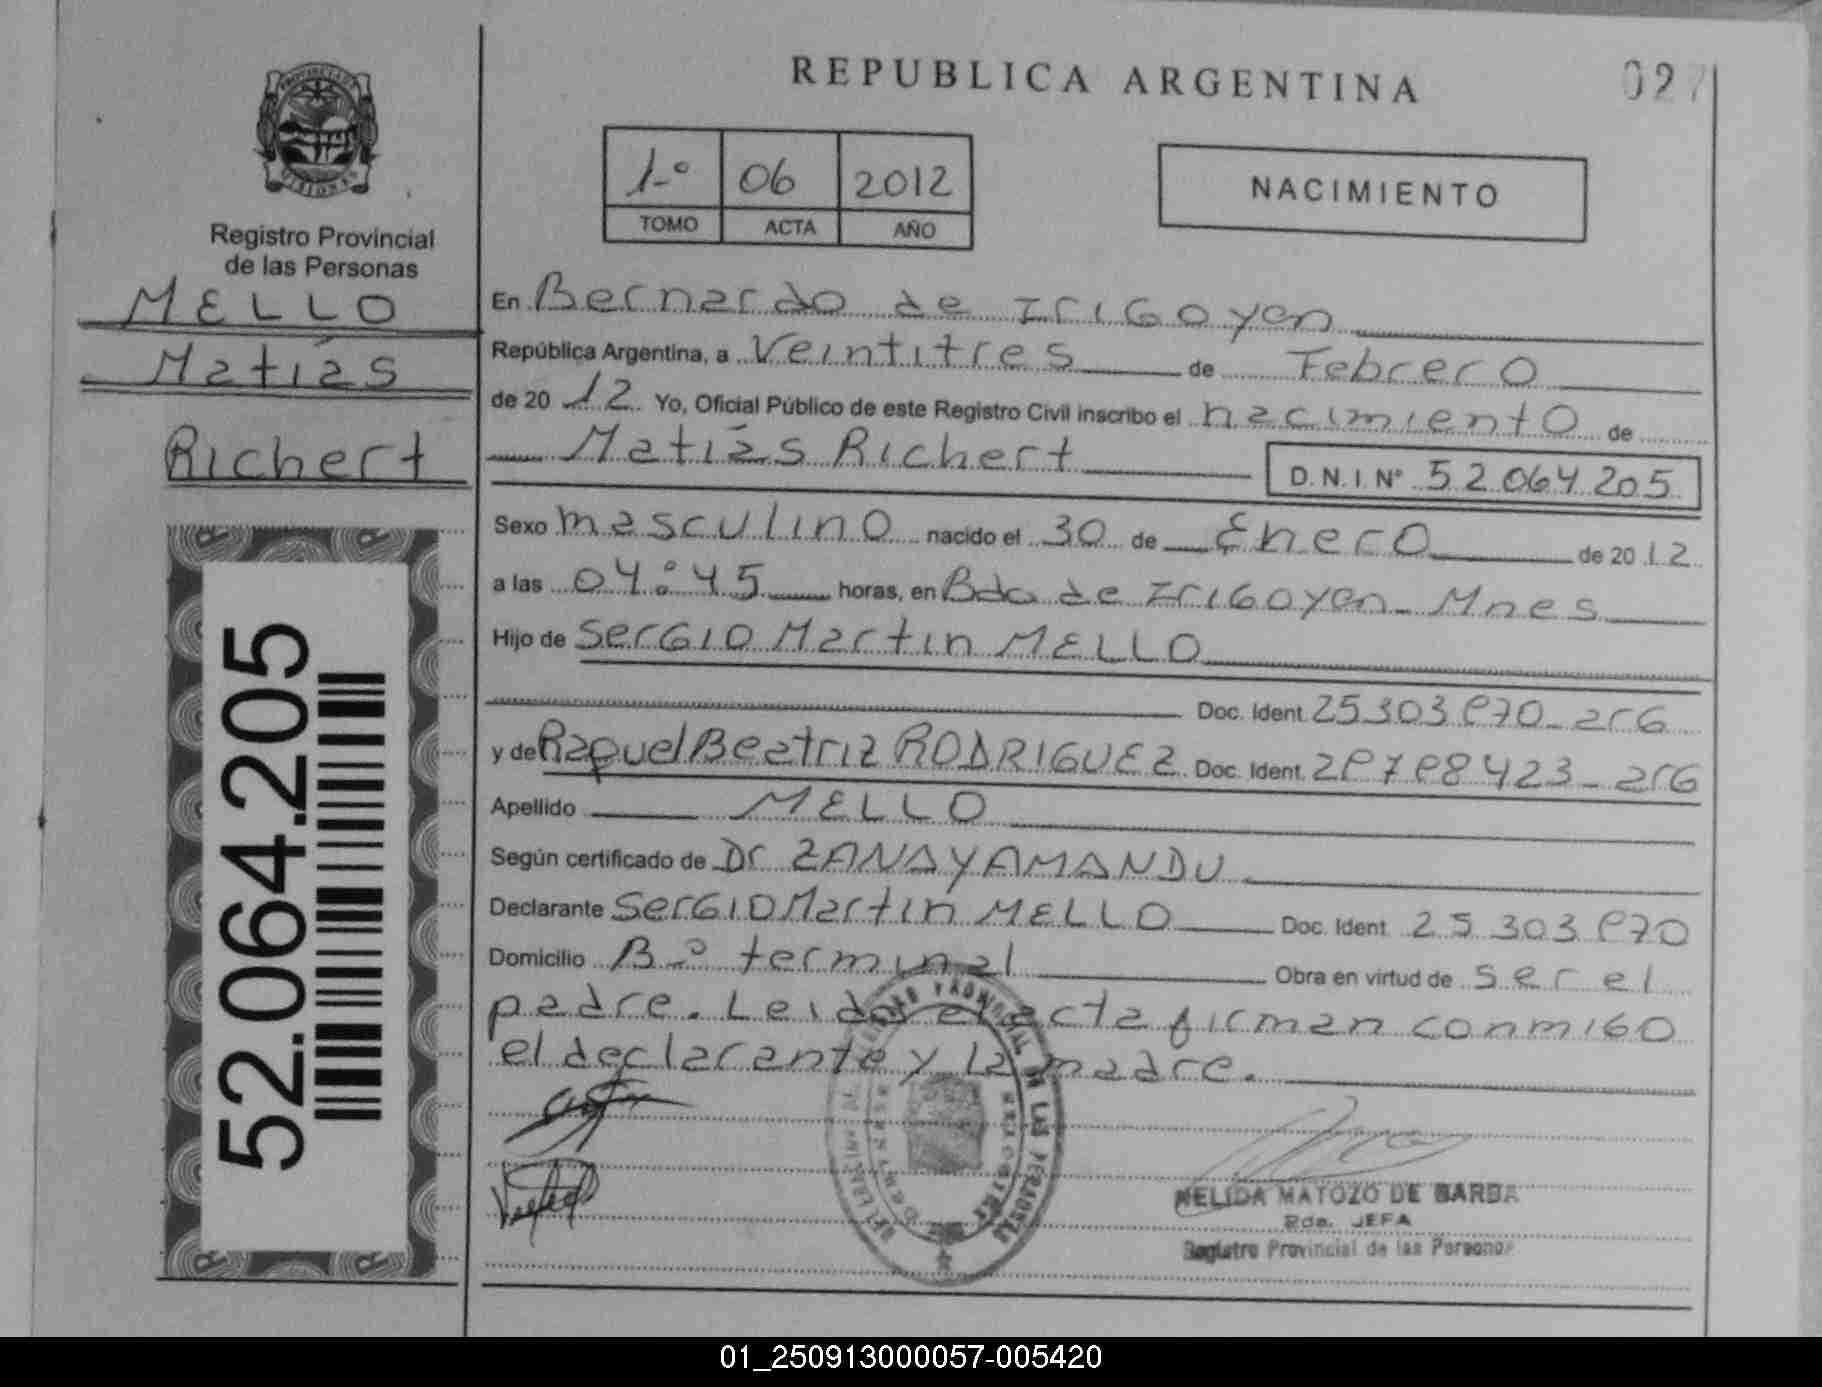 REPUBLICA ARGENTINA
027
PROVINCIA DE
MISIONES
Registro Provincial
de las Personas
MELLO
Matías
Richert
52.064.205
1-º 06 2012
TOMO ACTA AÑO
NACIMIENTO
En Bernardo de Irigoyen
República Argentina, a Veintitres de Febrero
de 20 12 Yo, Oficial Público de este Registro Civil inscribo el nacimiento de
Matías Richert D.N.I. Nº 52.064.205
Sexo masculino nacido el 30 de Enero de 20 12
a las 04:45 horas, en Bdo de Irigoyen - Mnes
Hijo de Sergio Martin MELLO
Doc. Ident. 25.303.870 - arg
y de Raquel Beatriz RODRIGUEZ Doc. Ident. 28.788.423 - arg
Apellido MELLO
Según certificado de Dr ZANAYAMANDU
Declarante Sergio Martin MELLO Doc. Ident. 25.303.870
Domicilio Bº terminal Obra en virtud de ser el
padre. Leida el acta firman conmigo
el declarante y la madre.
NELIDA MATOZO DE BARBA
2da. JEFA
Registro Provincial de las Personas
01_250913000057-005420